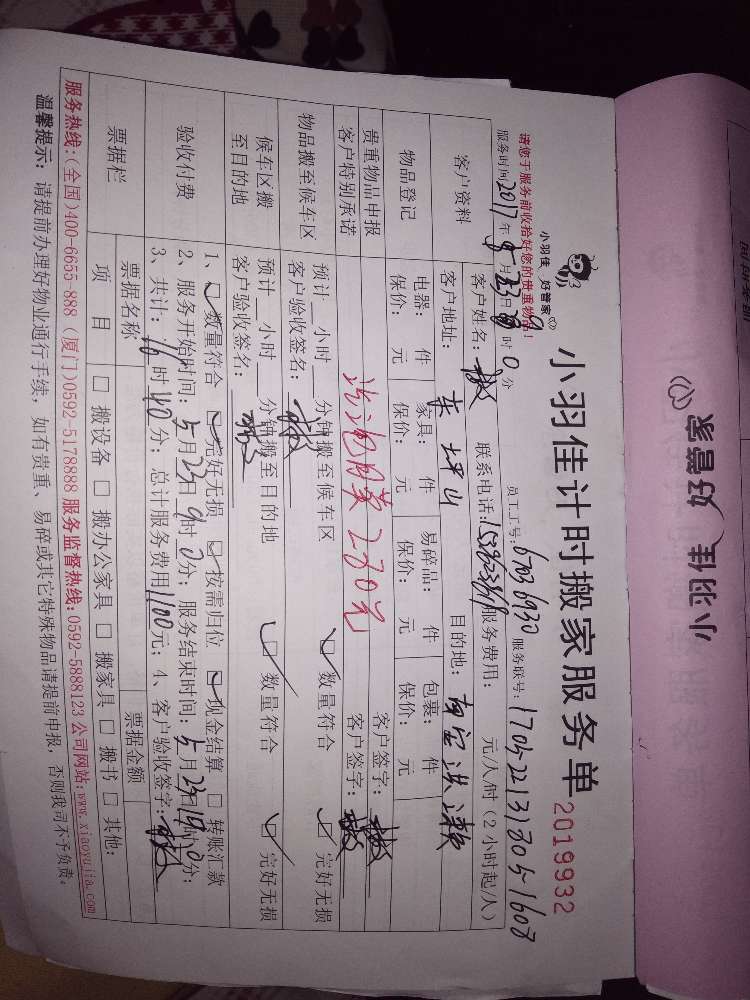 小羽佳 好管家
小羽佳 好管家
小羽佳计时搬家服务单
2019932
请您于服务前收拾好您的贵重物品！
员工工号: 6703 6930 服务联号:
服务时间: 2017年5月23日9时0分
客户资料
客户姓名: 联系电话: 服务费用: 元/人/时（2小时起/人）
客户地址: 东坪山 目的地:
物品登记
电器: 件 家具: 件 易碎品: 件 包裹: 件
保价: 元 保价: 元 保价: 元 保价: 元
贵重物品申报 客户签字:
客户特别承诺 280元 客户签字:
物品搬至候车区
预计__小时__分钟搬至候车区 数量符合 完好无损
客户验收签名:
候车区搬至目的地
预计__小时__分钟搬至目的地 数量符合 完好无损
客户验收签名:
验收付费
1、数量符合 完好无损 按需归位 现金结算 转账汇款
2、服务开始时间: 5月23日9时0分; 服务结束时间: 5月23日19时0分;
3、共计: 16时40分; 总计服务费用1100元; 4、客户验收签字:
票据栏
票据名称 票据金额
项目 搬设备 搬办公家具 搬家具 搬书 其他:
服务热线:(全国)400-6655-888 (厦门)0592-5178888 服务监督热线:0592-5888123 公司网站:www.xiaoyujia.com
温馨提示: 请提前办理好物业通行手续, 如有贵重、易碎或其它特殊物品请提前申报, 否则我司不予负责。